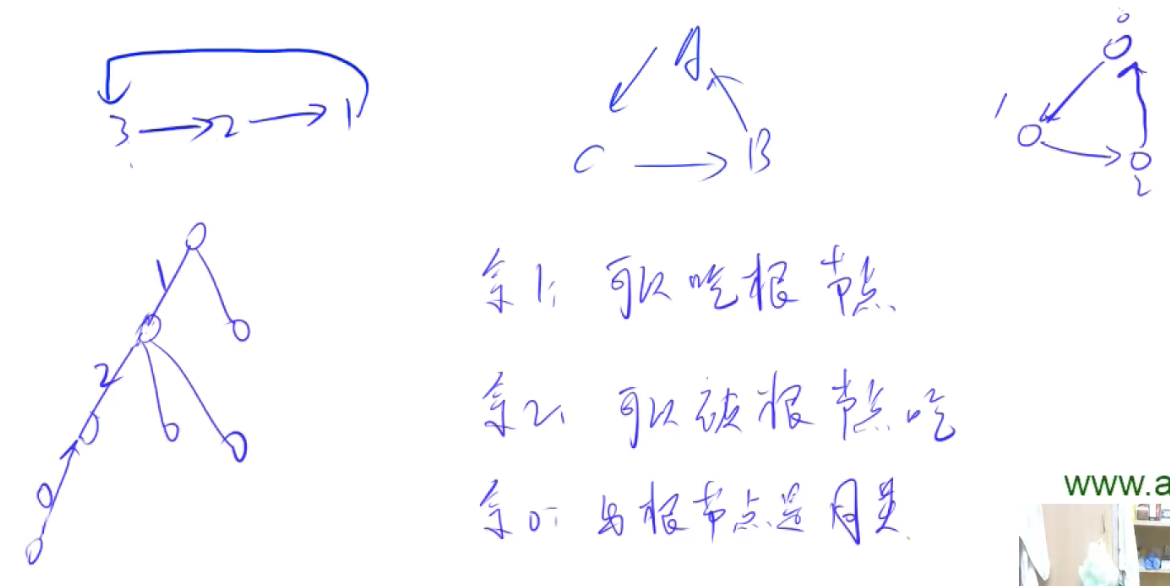 3 → 2 → 1
A
C → B
0
1
2
1
2
0
余1: 可以吃根节点
余2: 可以被根节点吃
余0: 与根节点是同类
www.a